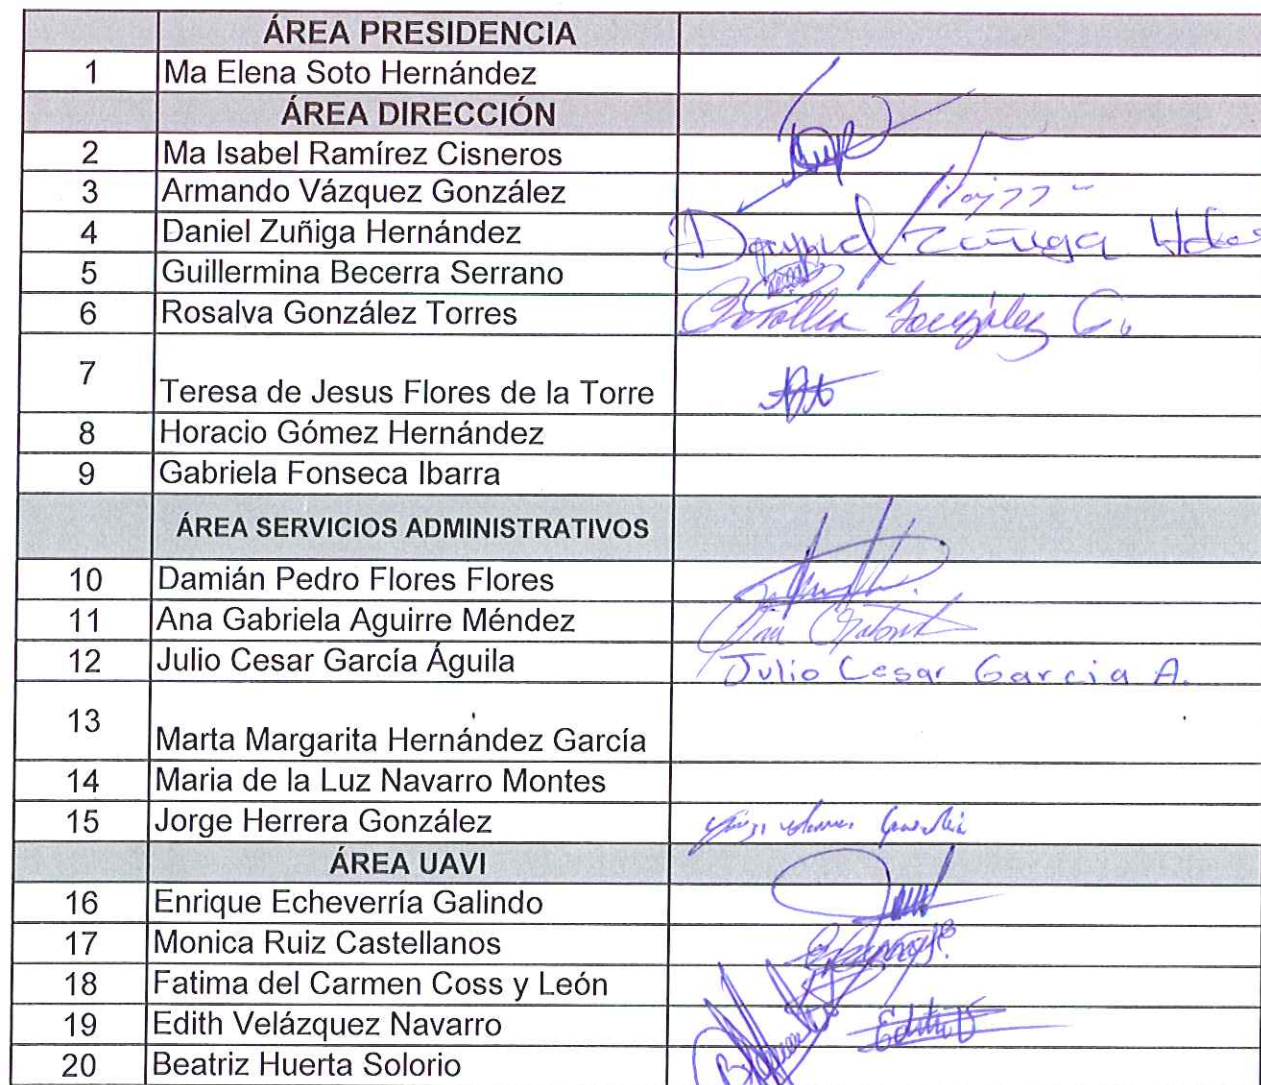 ÁREA PRESIDENCIA
1 Ma Elena Soto Hernández
ÁREA DIRECCIÓN
2 Ma Isabel Ramírez Cisneros
3 Armando Vázquez González
4 Daniel Zuñiga Hernández Daniel Zuñiga
5 Guillermina Becerra Serrano
6 Rosalva González Torres González
7 Teresa de Jesus Flores de la Torre
8 Horacio Gómez Hernández
9 Gabriela Fonseca Ibarra
ÁREA SERVICIOS ADMINISTRATIVOS
10 Damián Pedro Flores Flores
11 Ana Gabriela Aguirre Méndez
12 Julio Cesar García Águila Julio Cesar Garcia A.
13 Marta Margarita Hernández García
14 Maria de la Luz Navarro Montes
15 Jorge Herrera González
ÁREA UAVI
16 Enrique Echeverría Galindo
17 Monica Ruiz Castellanos
18 Fatima del Carmen Coss y León
19 Edith Velázquez Navarro Edith V
20 Beatriz Huerta Solorio